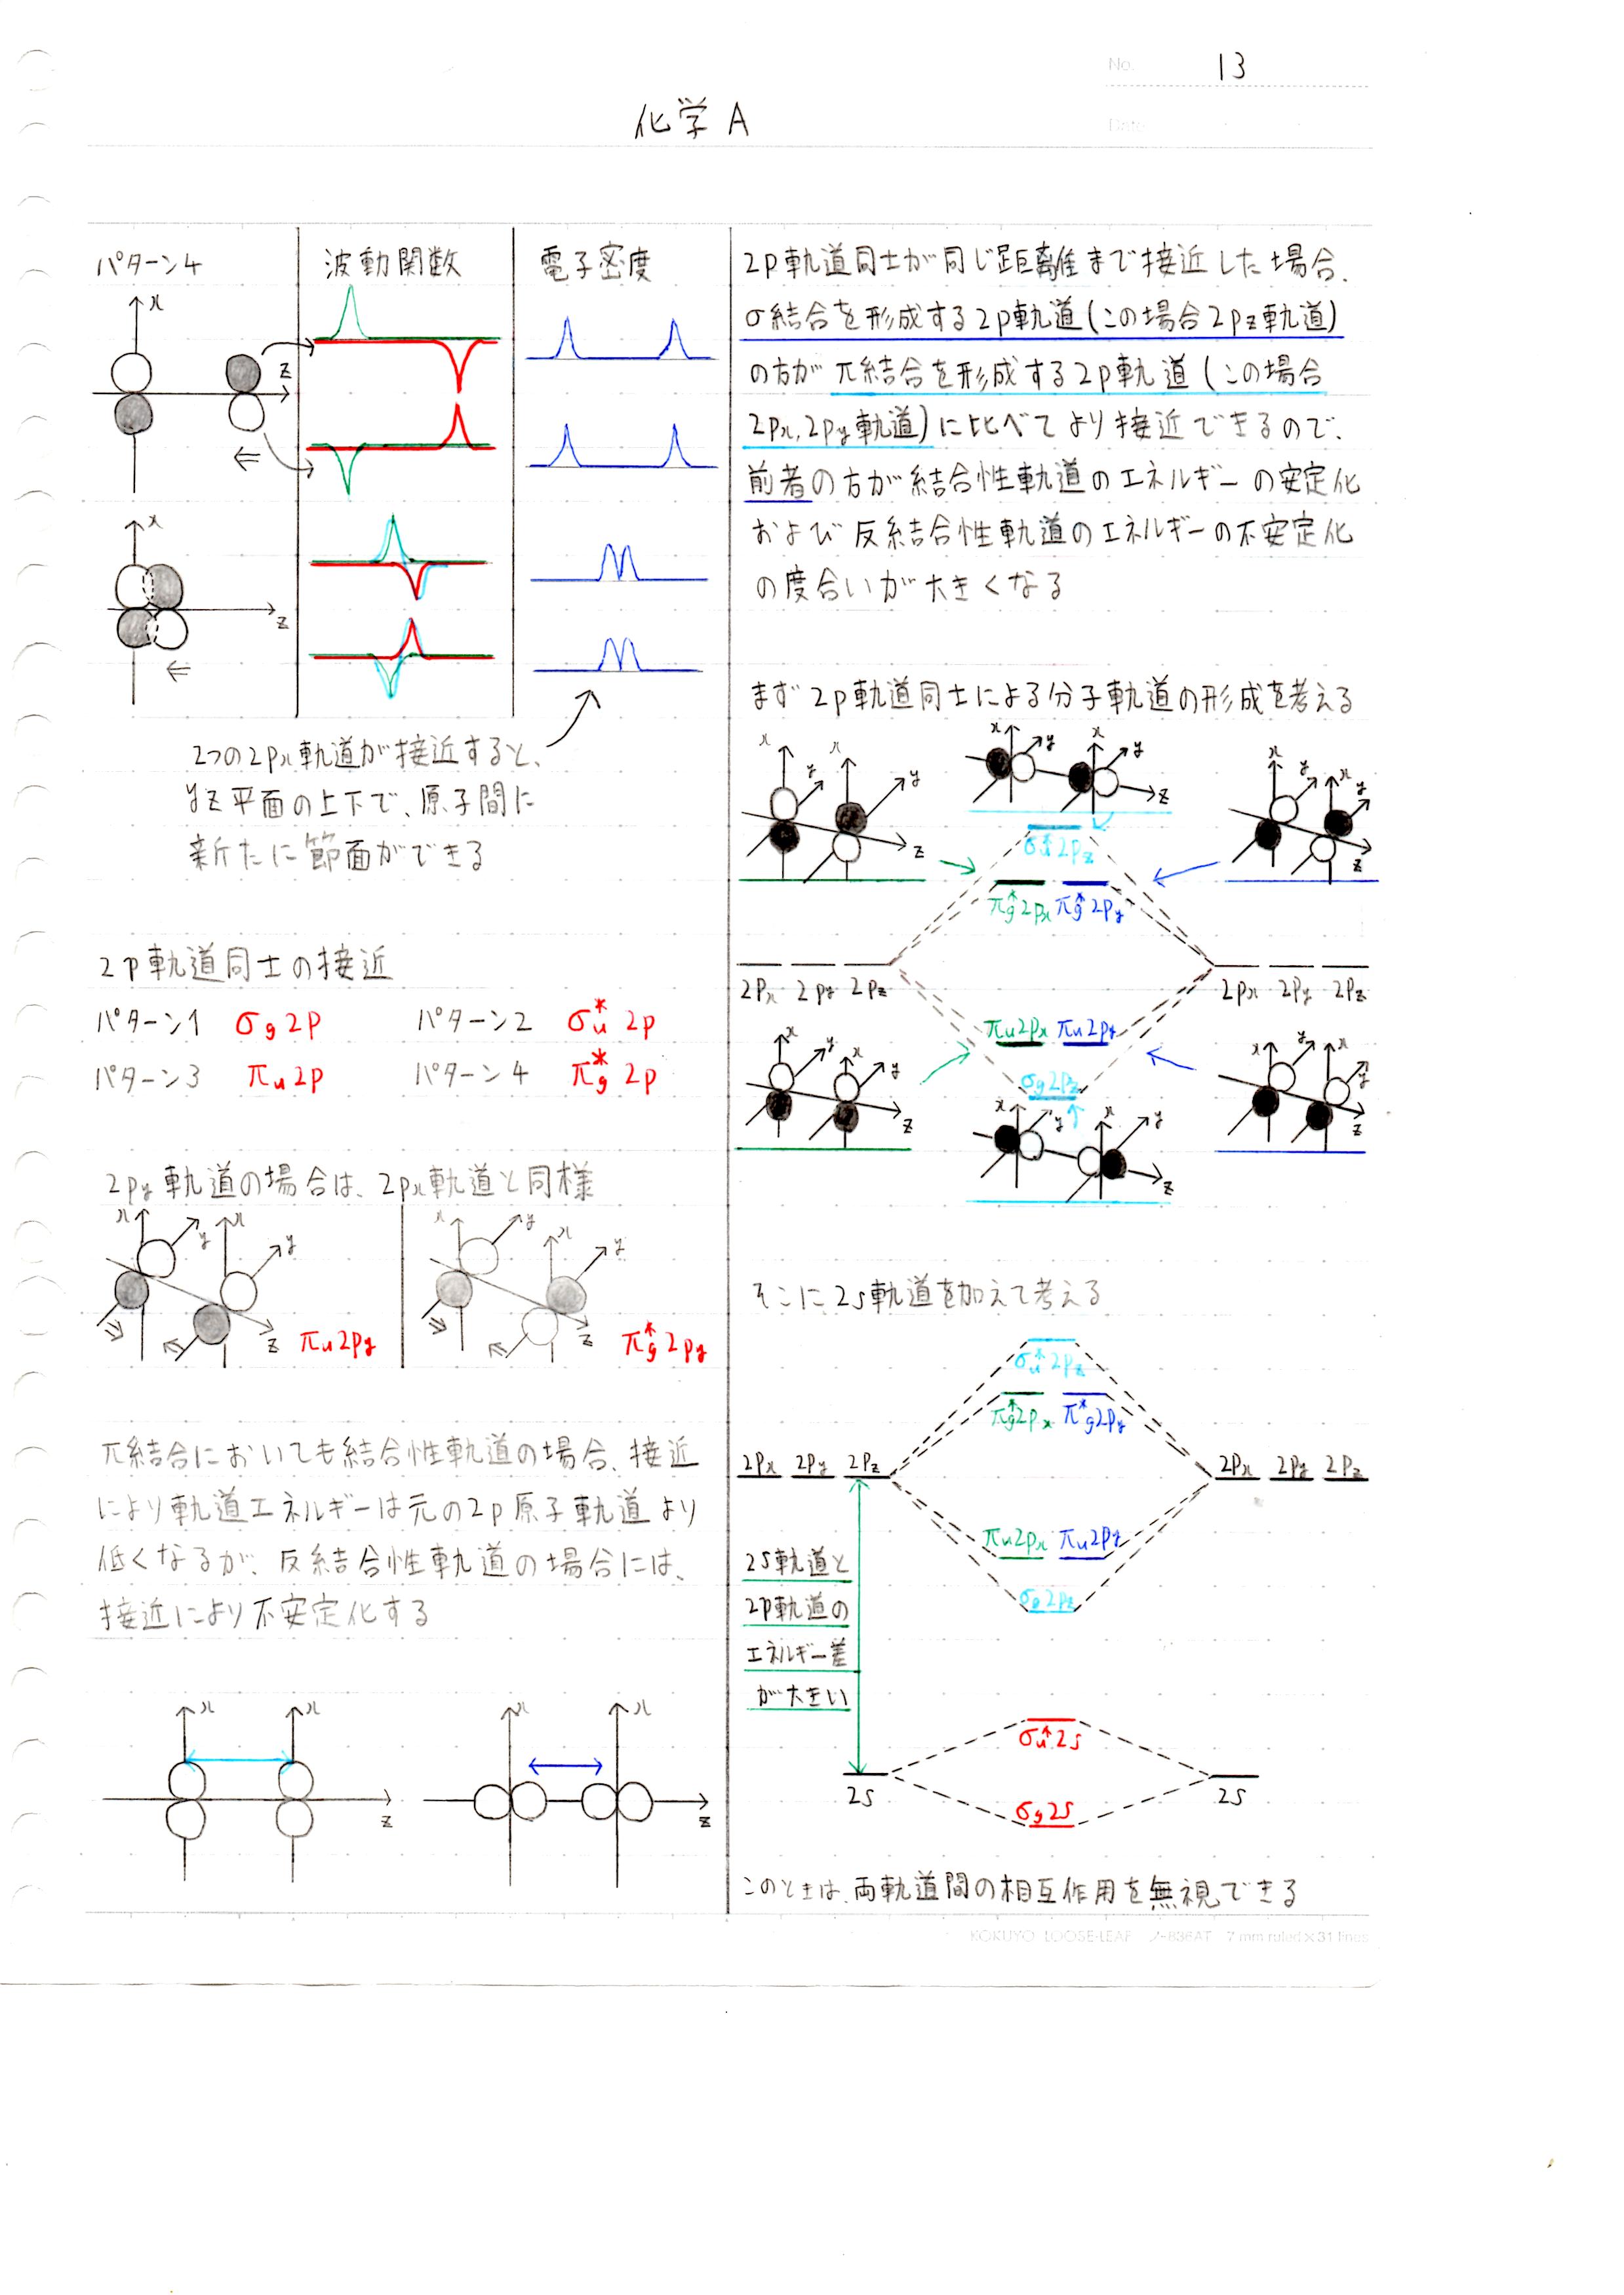 No. 13
Date
化学 A
パターン4
波動関数
電子密度
x
z
x
z
2つの2px軌道が接近すると、
yz平面の上下で、原子間に
新たに節面ができる
2p軌道同士の接近
パターン1 σg 2p パターン2 σu* 2p
パターン3 πu 2p パターン4 πg* 2p
2py軌道の場合は、2px軌道と同様
x y x y z
πu 2py
x y x y z
πg* 2py
π結合においても結合性軌道の場合、接近
により軌道エネルギーは元の2p原子軌道より
低くなるが、反結合性軌道の場合には、
接近により不安定化する
x x z
x x z
2p軌道同士が同じ距離まで接近した場合、
σ結合を形成する2p軌道(この場合2pz軌道)
の方がπ結合を形成する2p軌道(この場合
2px,2py軌道)に比べてより接近できるので、
前者の方が結合性軌道のエネルギーの安定化
および反結合性軌道のエネルギーの不安定化
の度合いが大きくなる
まず2p軌道同士による分子軌道の形成を考える
x y x y z
x y y z
x y x y z
σu* 2pz
πg* 2px πg* 2py
2px 2py 2pz
2px 2py 2pz
πu 2px πu 2py
σg 2pz
x y x y z
x y x y z
x y x y z
そこに2s軌道を加えて考える
σu* 2pz
πg* 2px πg* 2py
2px 2py 2pz
2px 2py 2pz
πu 2px πu 2py
σg 2pz
2s軌道と
2p軌道の
エネルギー差
が大きい
σu* 2s
2s
2s
σg 2s
このときは、両軌道間の相互作用を無視できる
KOKUYO LOOSE-LEAF ノ-836AT 7 mm ruled×31 lines